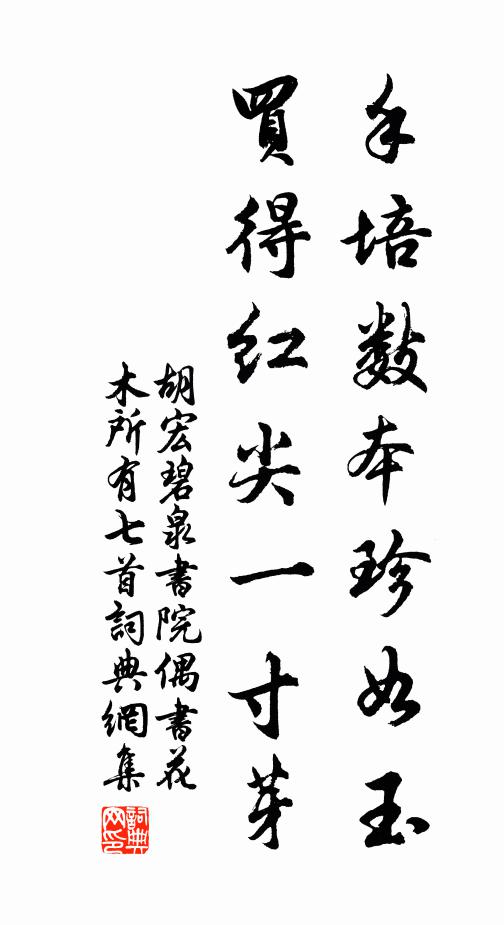 手培數本珍如玉
買得紅尖一寸芽
胡宏碧泉書院偶書花
木所有七首詞典網集
詞典网印